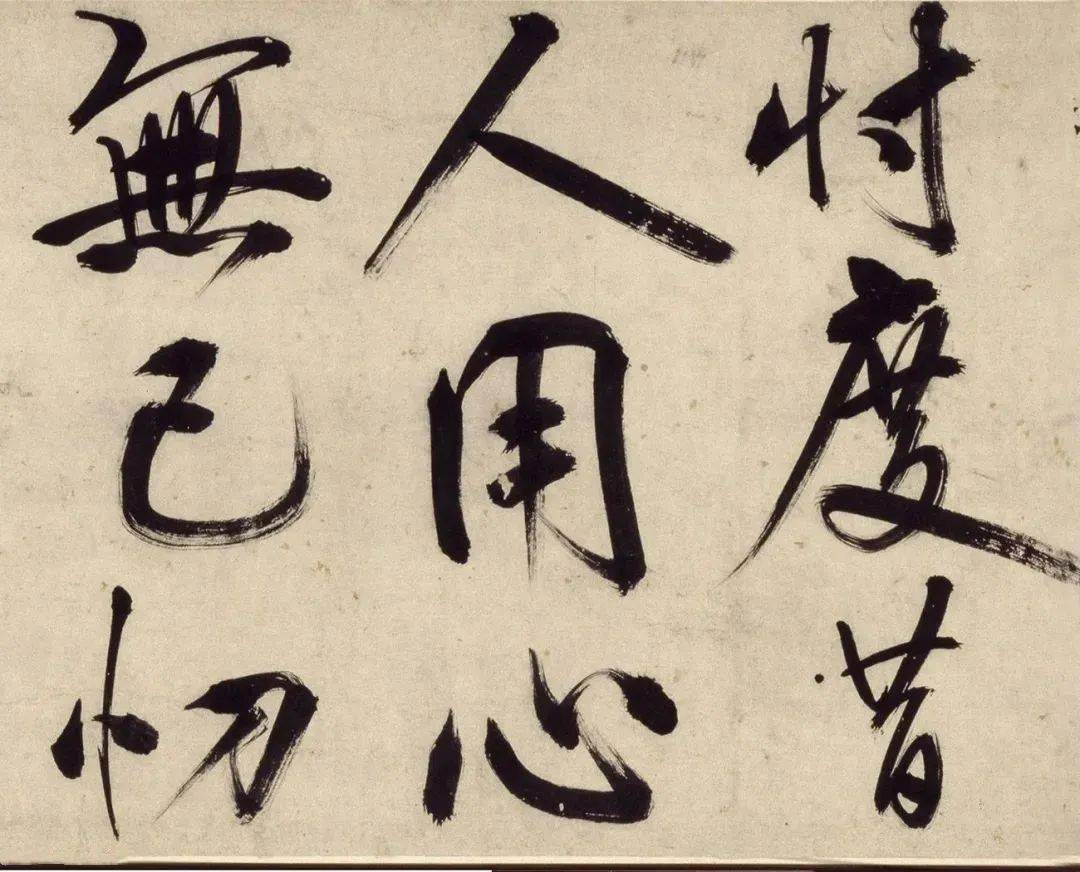 忖度昔
人用心
無已切